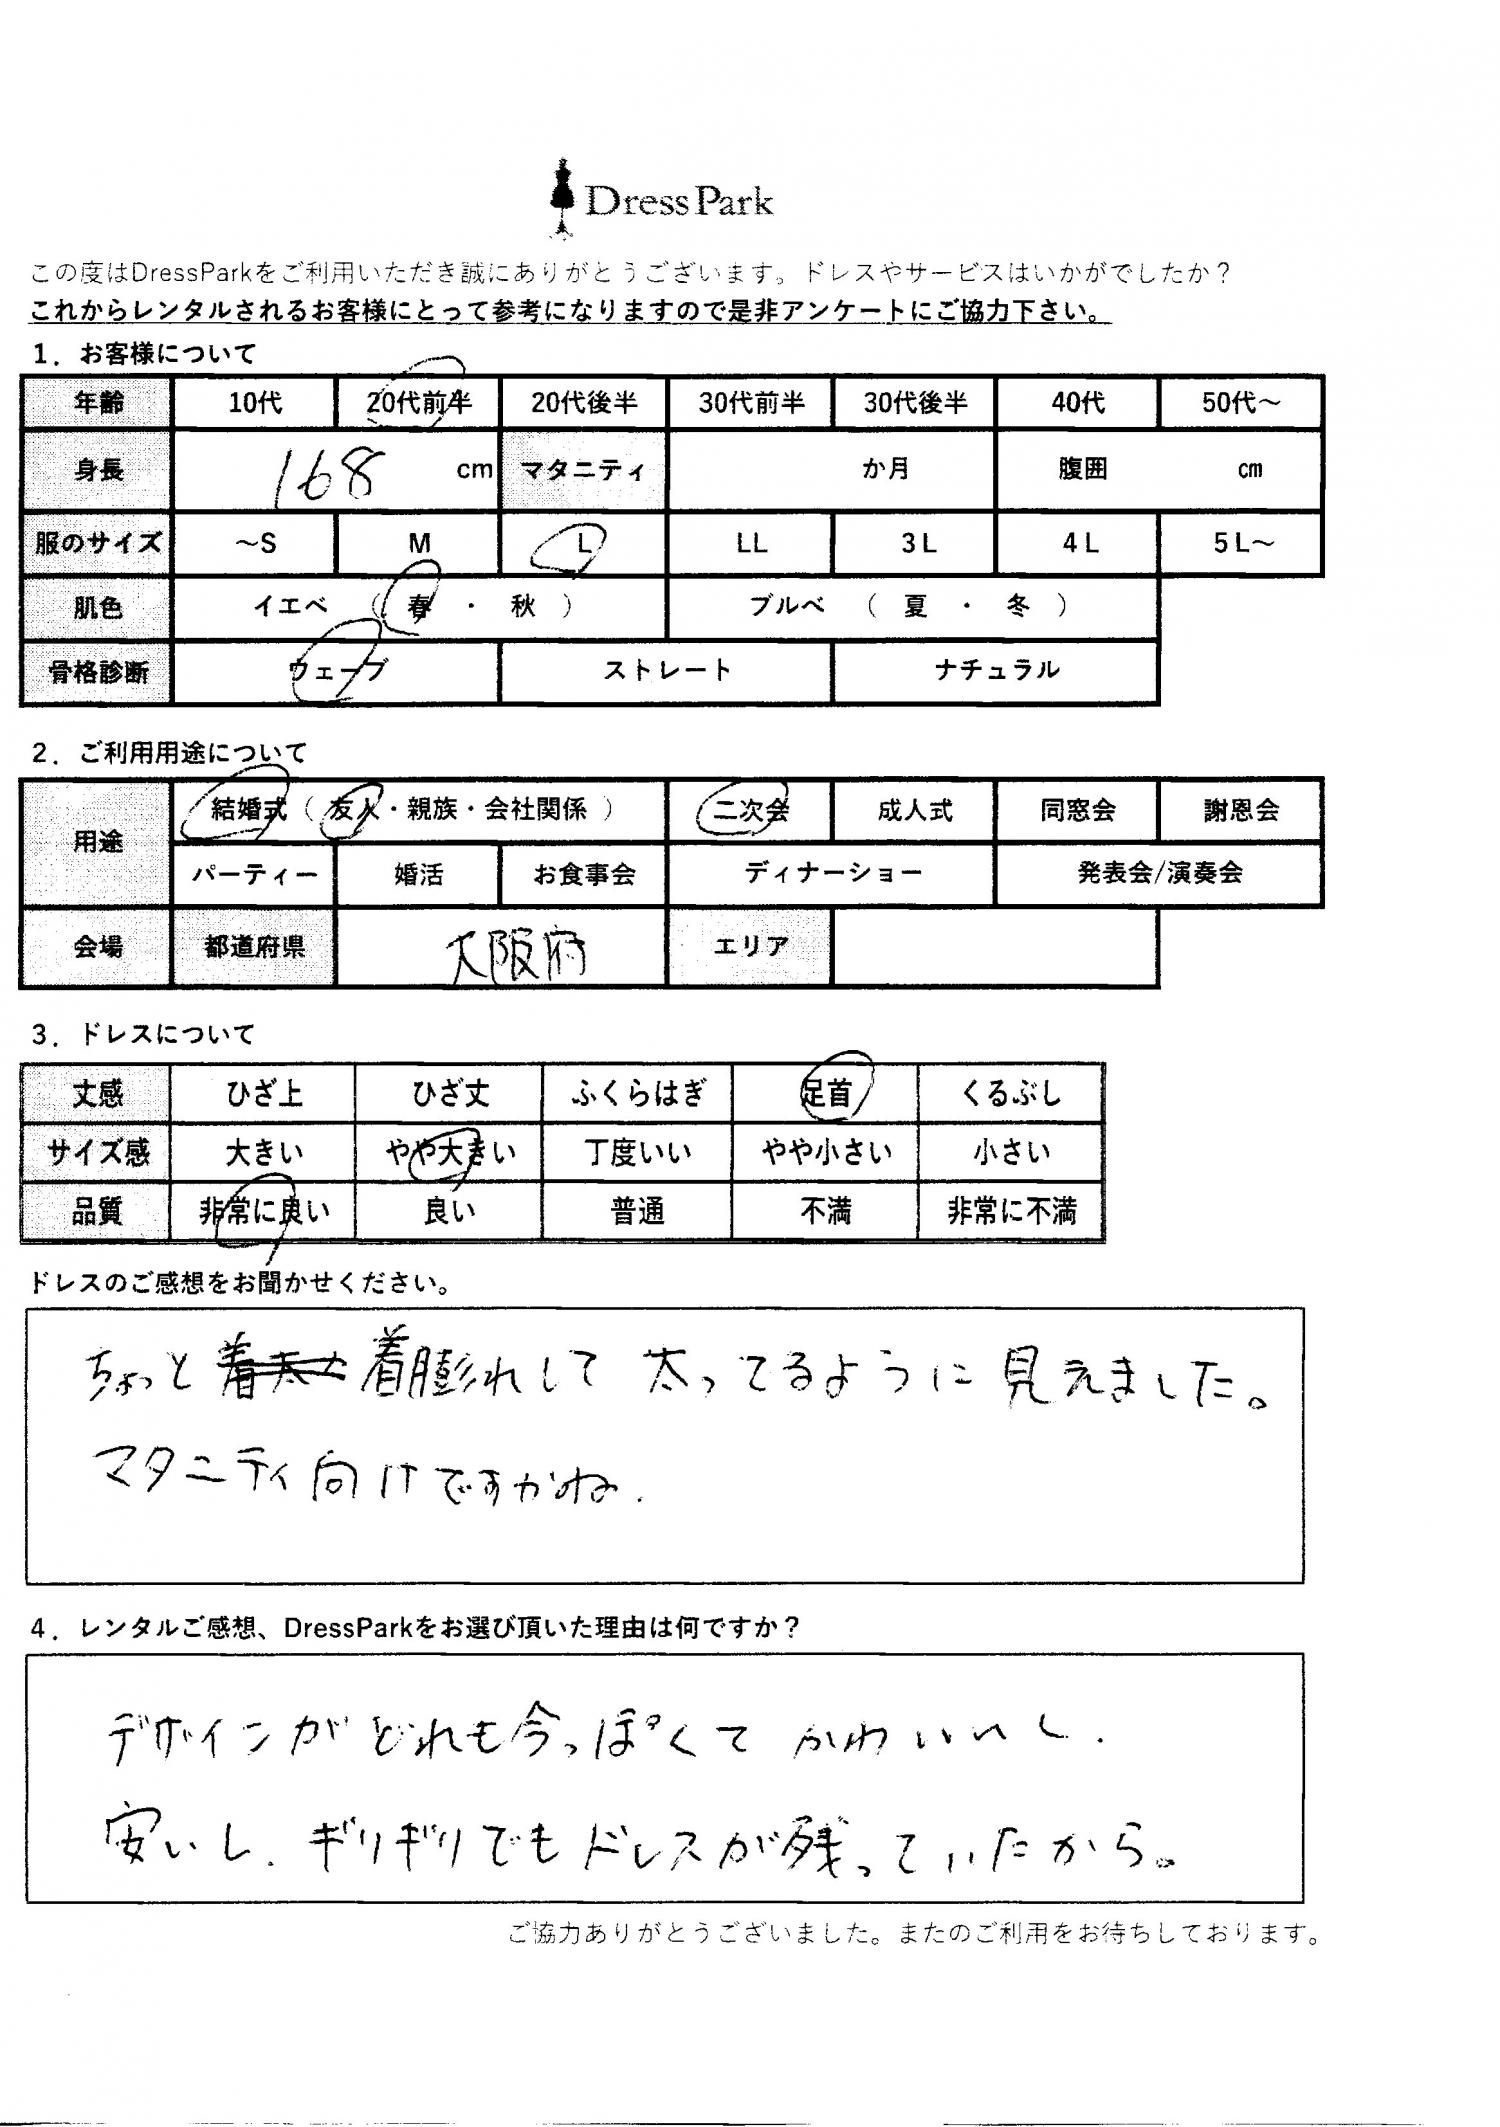 DressPark
この度はDressParkをご利用いただき誠にありがとうございます。ドレスやサービスはいかがでしたか？
これからレンタルされるお客様にとって参考になりますので是非アンケートにご協力下さい。
1．お客様について
年齢 10代 20代前半 20代後半 30代前半 30代後半 40代 50代～
身長 168 cm マタニティ か月 腹囲 cm
服のサイズ ～S M L LL 3L 4L 5L～
肌色 イエベ （ 春 ・ 秋 ） ブルベ （ 夏 ・ 冬 ）
骨格診断 ウェーブ ストレート ナチュラル
2．ご利用用途について
用途 結婚式（友人・親族・会社関係） 二次会 成人式 同窓会 謝恩会
パーティー 婚活 お食事会 ディナーショー 発表会/演奏会
会場 都道府県 大阪府 エリア
3．ドレスについて
丈感 ひざ上 ひざ丈 ふくらはぎ 足首 くるぶし
サイズ感 大きい やや大きい 丁度いい やや小さい 小さい
品質 非常に良い 良い 普通 不満 非常に不満
ドレスのご感想をお聞かせください。
ちょっと 着膨れして 太ってるように見えました。
マタニティ向けですかね.
4．レンタルご感想、DressParkをお選び頂いた理由は何ですか？
デザインがどれも今っぽくてかわいいし.
安いし. ギリギリでもドレスが残っていたから。
ご協力ありがとうございました。またのご利用をお待ちしております。